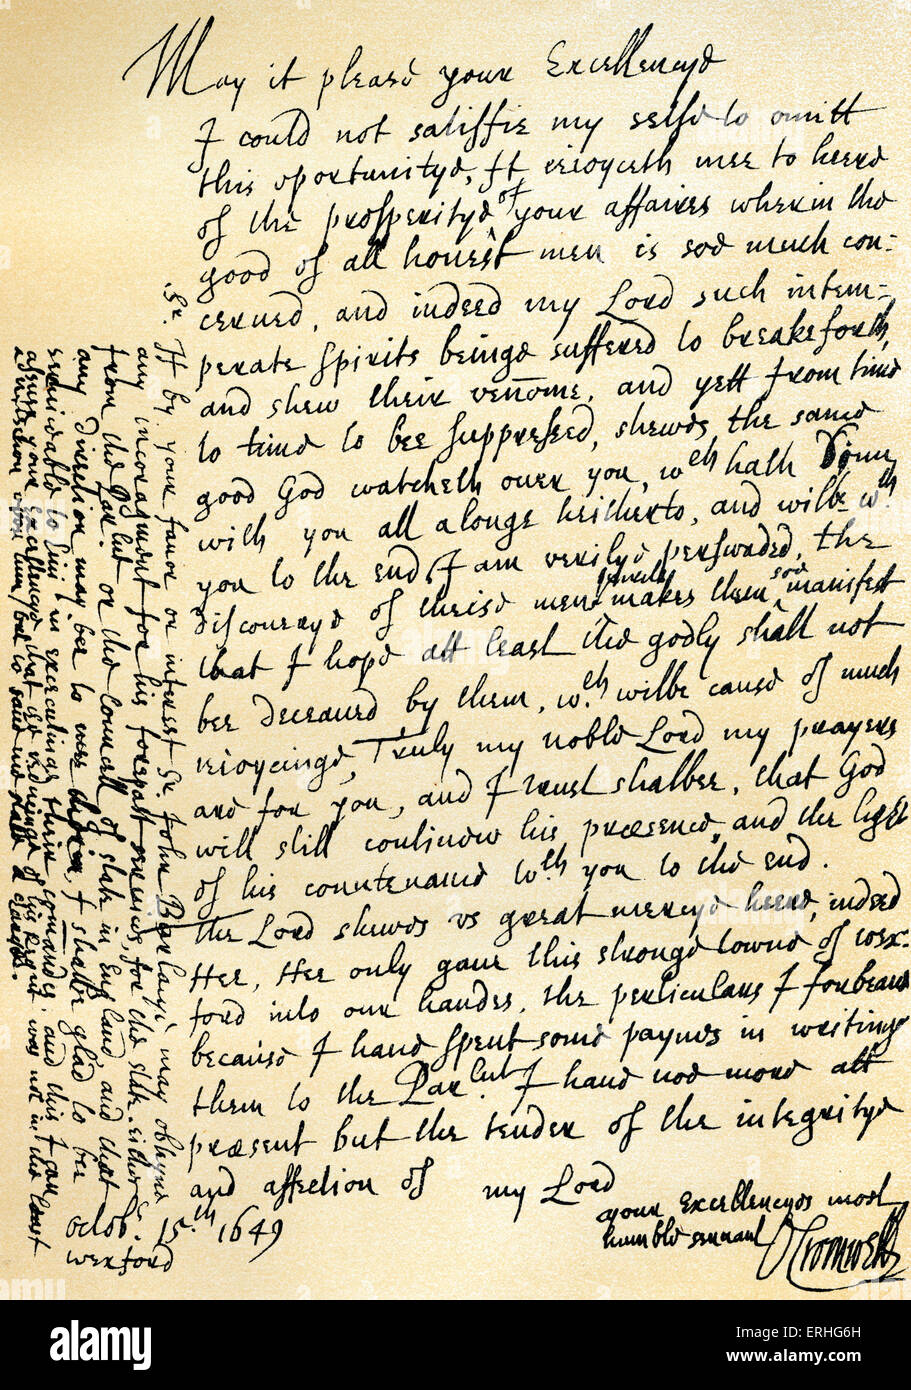 May it please your Excellencye
I could not satisffie my selfe to omitt
this oportunitye, It reioyceth mee to heere
of the prosperitye of your affaires wherin the
good of all honest men is soe much con=
cerned, and indeed my Lord such intem=
perate spirits beinge suffered to breake forth,
and shew their venōme, and yett from time
to time to bee suppressed, shewes the same
good God watcheth over you, wch hath
with you all alonge heitherto, and wilbe wth
you to the end, I am verilye perswaded, the
discourye of theise men makes them soe manifest
that I hope att least the godly shall not
bee deceaued by them, wch wilbe cause of much
reioycinge, Truly my noble Lord my prayers
are for you, and I trust shalbee, that God
will still continow his præsence, and the light
of his countenance wth you to the end.
the Lord shewes vs great mercye heere, indeed
Hee, Hee only gaue this stronge towne of wex=
ford into our handes, the perticulars I forbeare
because I haue spent some paynes in writing
them to the Parlnt. I haue noe more att
present but the tender of the integritye
and affection of my Lord
your Excellencyes most
humble seruant
O Cromwell
Octob. 15th 1649
wexford
Sr. If by your fauor or interest Sr. John may obtayne
any incoragment for his forepast seruices, for the state, either
from the Par. or the Councell of state in England, and that
any direction may bee to mee I shalbe glad to bee
seruiceable to him in executinge their comandes, and this I can
assure your Excellencye that the of his Regnt was not in the least
a
alamy
Image ID: ERHG6H
www.alamy.com